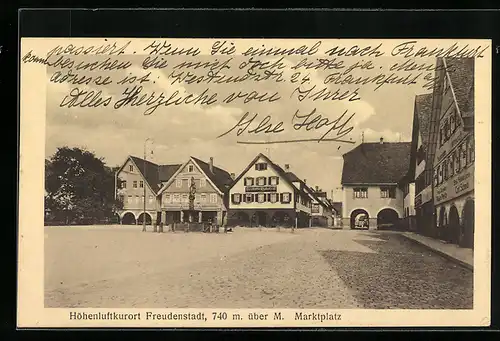 passiert. Wenn Sie einmal nach Frankfurt
kommen besuchen Sie mich doch bitte ja. Meine
Adresse ist: Westendstr 24, Frankfurt a/M
Alles Herzliche von Ihrer
Ilse Hoff
Höhenluftkurort Freudenstadt, 740 m. über M. Marktplatz